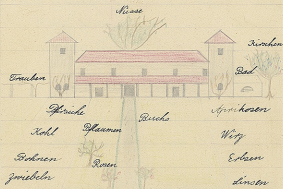 Nüsse
Kirschen
Trauben
Bad
Pfirsiche
Birchs
Aprikosen
Kohl
Pflaumen
Wirz
Bohnen
Rosen
Erbsen
zwiebeln
Linsen